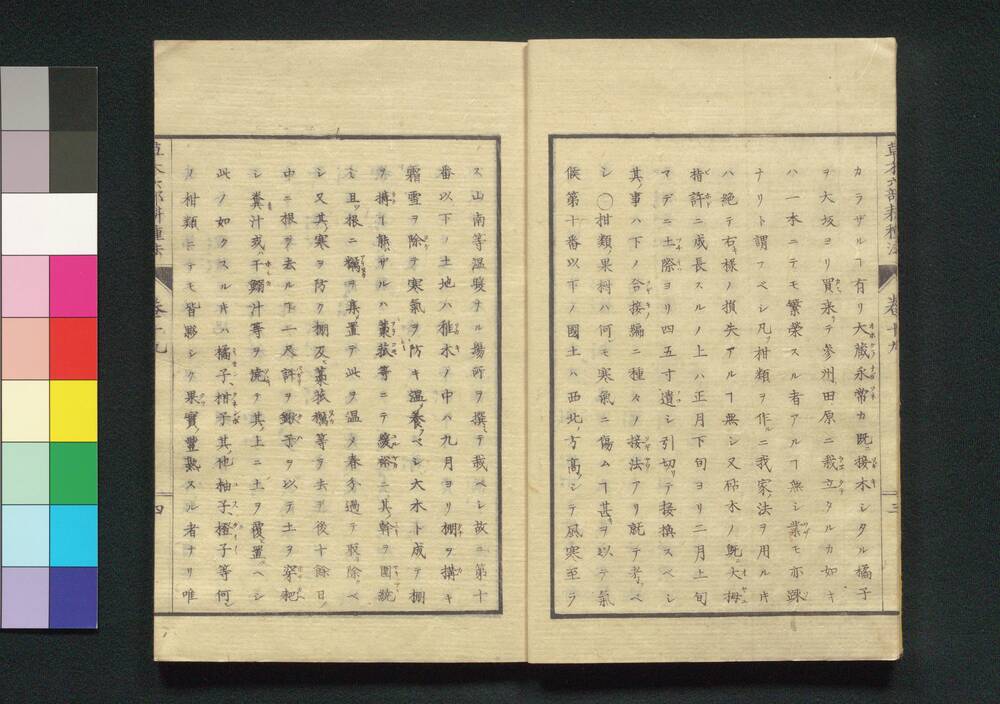 草木六部耕種法 卷十九 三
カラザルヿ有リ大藏永常カ既接木シタル橘子
ヲ大坂ヨリ買来テ參州田原ニ栽立タルカ如キ
ハ一本ニテモ繁榮スル者アルヿ無シ業モ亦踈
ナリト謂フベシ凡柑類ヲ作ニ我家法ヲ用ルキ
ハ絶テ右樣ノ損失アルヿ無シ又砧木ノ既大拇
指許ニ成長スルノ上ハ正月下旬ヨリ二月上旬
マデニ土際ヨリ四五寸遺シ引切リテ接換スベシ
其事ハ下ノ合接編ニ種々ノ接法アリ就テ考ベ
シ〇柑類果樹ハ何モ寒氣ニ傷ムヿ甚キヲ以テ氣
候第十番以下ノ國土ハ西北ノ方高シテ風寒至ラ
ス山南等温暖ナル場所ヲ撰テ栽ベシ故ニ第十
番以下ノ土地ハ稚木ノ中ハ九月ヨリ棚ヲ搆キ
霜雪ヲ除テ寒氣ヲ防キ温養ベシ大木ト成テ棚
ヲ搆ヿ能ザルハ藁菰等ニテ緩裕ニ其幹ヲ圍繞
シ且根ニ糠ヲ棄置テ此ヲ温メ春分過テ取除ベ
シ又其寒ヲ防ク棚及藁菰糠等ヲ去テ後十餘日ノ
中ニ根ヲ去ル下一尺許ヲ鍬子ヲ以テ土ヲ穿耙
シ糞汁或ハ干鰯汁等ヲ澆テ其上ニ土ヲ覆置ヘシ
此ノ如クスルキハ橘子、柑子其他柚子、橙子等何
ノ柑類ニテモ皆夥シク果實豐熟スル者ナリ唯
草木六部耕種法 卷十九 四